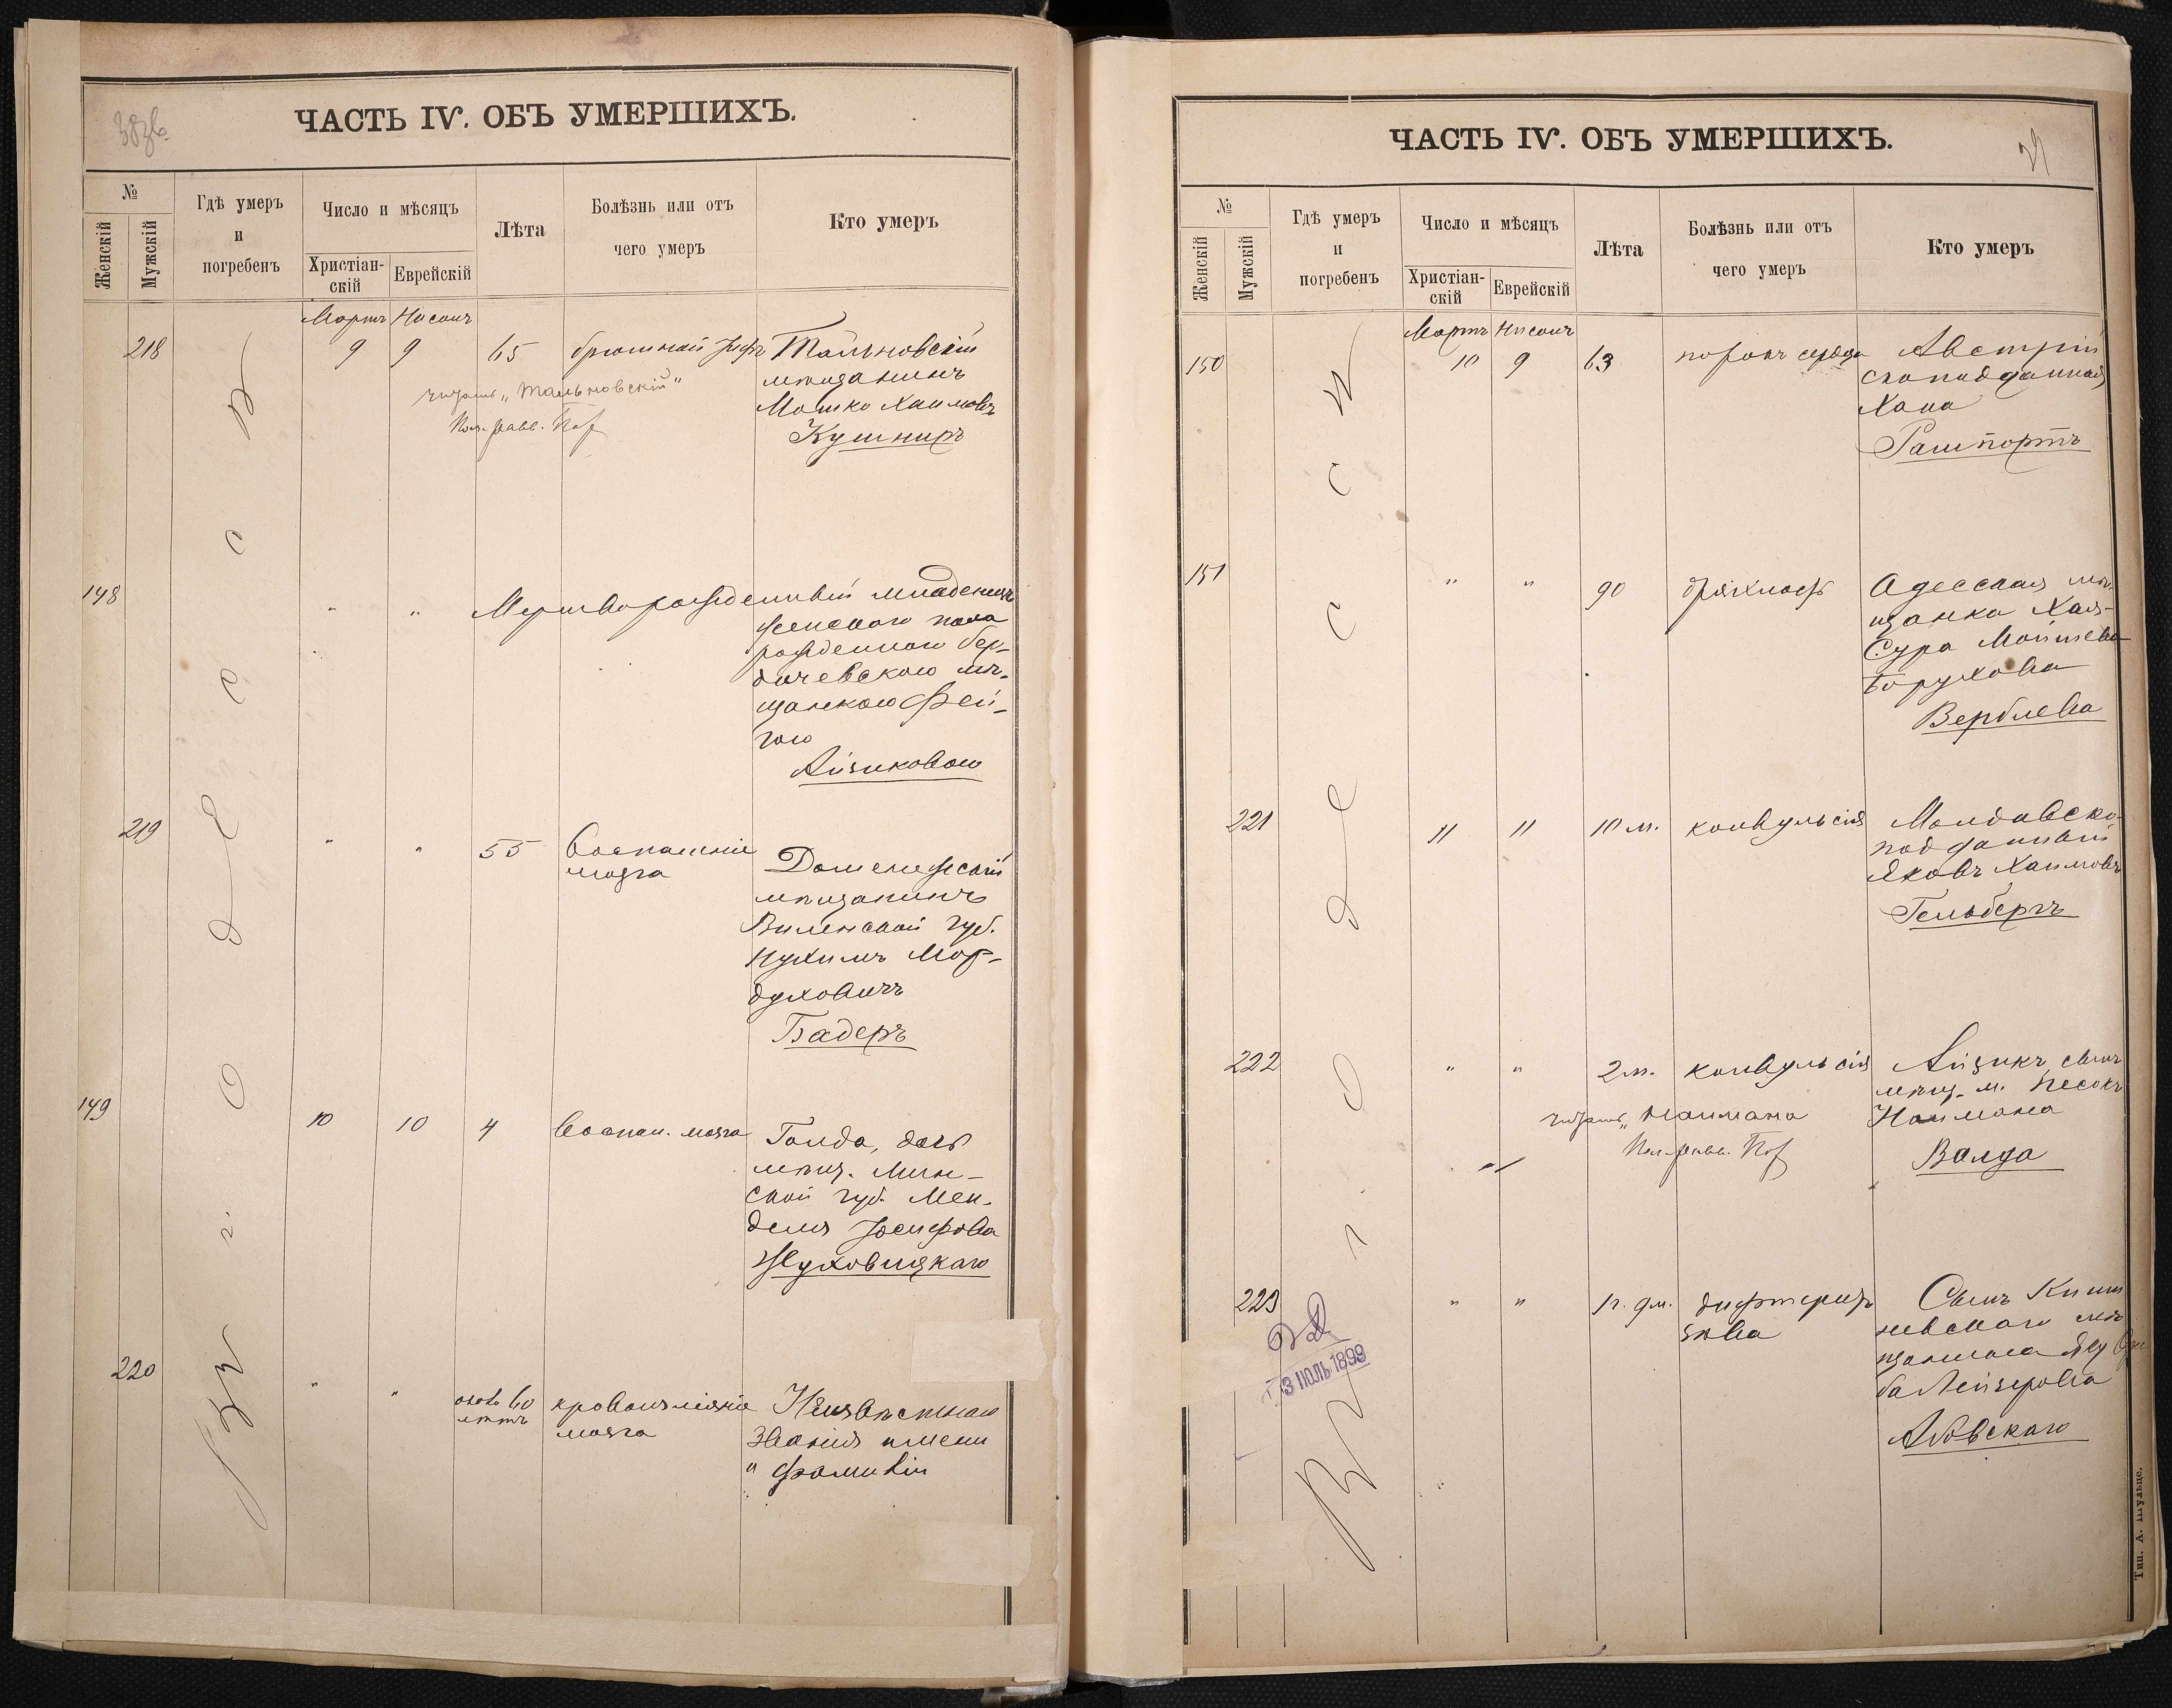 ЧАСТЬ IV. ОБЪ УМЕРШИХЪ.
№
Женскій
Мужскій
Гдѣ умеръ
и
погребенъ
Число и мѣсяцъ
Христіан-
скій
Еврейскій
Лѣта
Болѣзнь или отъ
чего умеръ
Кто умеръ
Въ г. Одессѣ
Мартъ Нисанъ
218 9 9 65 брюшной тифъ Тальновскій
мѣщанинъ
Мошко Хаимовъ
Кушниръ
читать „Тальновскій"
148 " " Мертворожденный младенецъ
женскаго пола
рожденного бер-
дичевскою мѣ-
щанкою Фей-
гою
Айзиковою
219 " " 55 Воспаленіе
мозга
мѣщанинъ
Виленской губ.
Нухимъ Мор-
духовичъ
Бадеръ
149 10 10 4 Воспал. мозга Голда, дочь
мѣщ. Мин-
ской губ. Мен-
деля Іосифова
Жуховицкаго
220 " " около 60
лѣтъ
кровоизліяніе
мозга
Неизвѣстнаго
званія имени
и фамиліи
ЧАСТЬ IV. ОБЪ УМЕРШИХЪ.
№
Женскій
Мужскій
Гдѣ умеръ
и
погребенъ
Число и мѣсяцъ
Христіан-
скій
Еврейскій
Лѣта
Болѣзнь или отъ
чего умеръ
Кто умеръ
Въ г. Одессѣ
Мартъ Нисанъ
150 10 9 63 порокъ сердца Австрій
скоподданная
Хана
Рапопортъ
151 " " 90 дряхлость Одесская мѣ-
щанка Хая-
Сура Мойшева
Борухова
Верблева
221 11 11 10 м. конвульсія Молдавско-
подданный
Яковъ Хаимовъ
Гельбергъ
222 " " 2 м. конвульсія Айзикъ, сынъ
мѣщ. м. Песокъ
Наимана
Валда
читать „Наимана
223 " " 1 г. 9 м. дифтеритъ
зѣва
Сынъ Киши
невскаго мѣ
щанина
ба Лейзерова
Абовскаго
3 ІЮЛЬ 1899
Тип. А. Шульце.